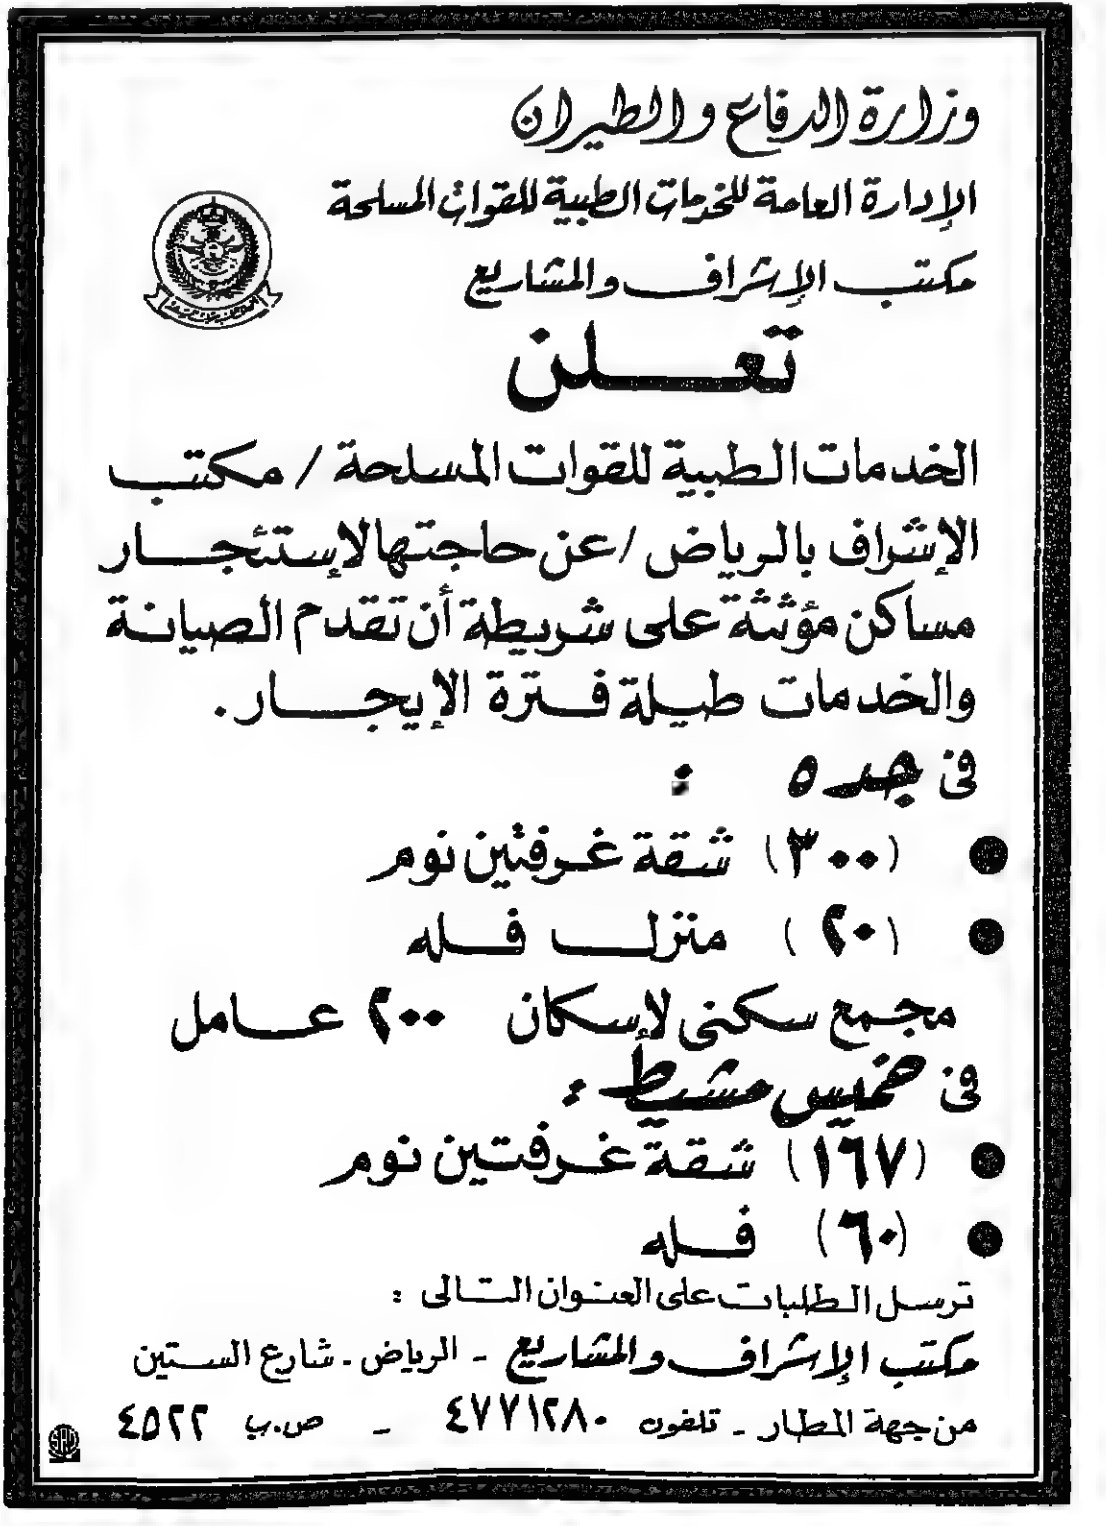 وزارة الدفاع والطيران
الإدارة العامة للخدمات الطبية للقوات المسلحة
مكتب الإشراف والمشاريع
تعلن
الخدمات الطبية للقوات المسلحة / مكتب
الإشراف بالرياض / عن حاجتها لإستئجار
مساكن مؤثثة على شريطة أن تقدم الصيانة
والخدمات طيلة فترة الإيجار .
فى جده :
● (٣٠٠) شقة غرفتين نوم
● (٢٠) منزل فله
مجمع سكنى لإسكان ٢٠٠ عامل
فى خميس مشيط :
● (١٦٧) شقة غرفتين نوم
● (٦٠) فله
ترسل الطلبات على العنوان التالى :
مكتب الإشراف والمشاريع - الرياض - شارع الستين
من جهة المطار - تلفون ٤٧٧١٢٨٠ - ص.ب ٤٥٢٢